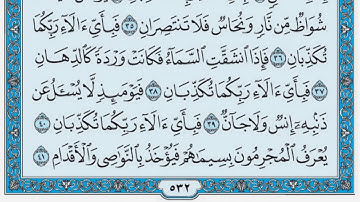 شُوَاظٌ مِّن نَّارٍ وَنُحَاسٌ فَلَا تَنتَصِرَانِ ٣٥ فَبِأَيِّ ءَالَآءِ رَبِّكُمَا
تُكَذِّبَانِ ٣٦ فَإِذَا ٱنشَقَّتِ ٱلسَّمَآءُ فَكَانَتْ وَرْدَةً كَٱلدِّهَانِ
٣٧ فَبِأَيِّ ءَالَآءِ رَبِّكُمَا تُكَذِّبَانِ ٣٨ فَيَوْمَئِذٍ لَّا يُسْـَٔلُ عَن
ذَنۢبِهِۦٓ إِنسٌ وَلَا جَآنٌّ ٣٩ فَبِأَيِّ ءَالَآءِ رَبِّكُمَا تُكَذِّبَانِ ٤٠
يُعْرَفُ ٱلْمُجْرِمُونَ بِسِيمَٰهُمْ فَيُؤْخَذُ بِٱلنَّوَٰصِي وَٱلْأَقْدَامِ ٤١
٥٣٢